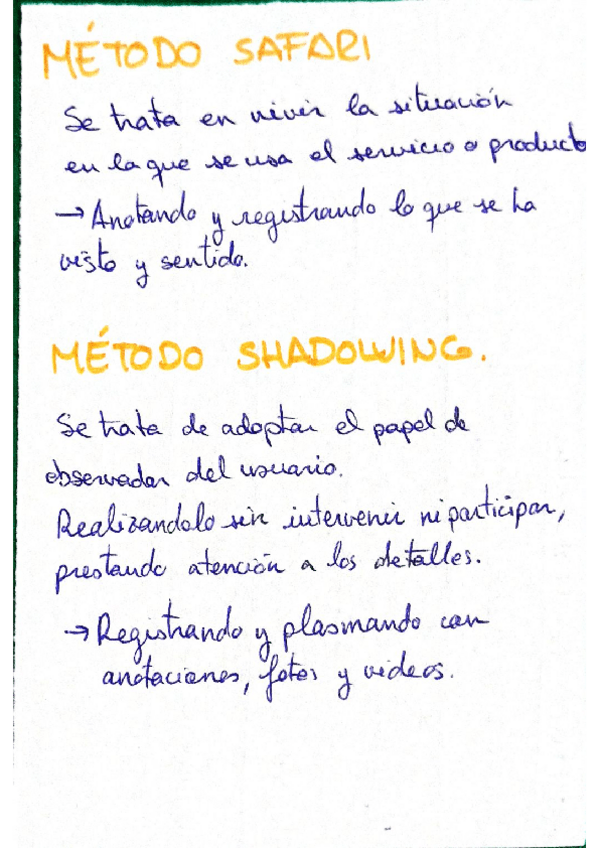 MÉTODO SAFARI
Se trata en vivir la situación
en la que se usa el servicio o producto
→ Anotando y registrando lo que se ha
visto y sentido.
MÉTODO SHADOWING.
Se trata de adoptar el papel de
observador del usuario.
Realizandolo sin intervenir ni participar,
prestando atención a los detalles.
→ Registrando y plasmando con
anotaciones, fotos y videos.